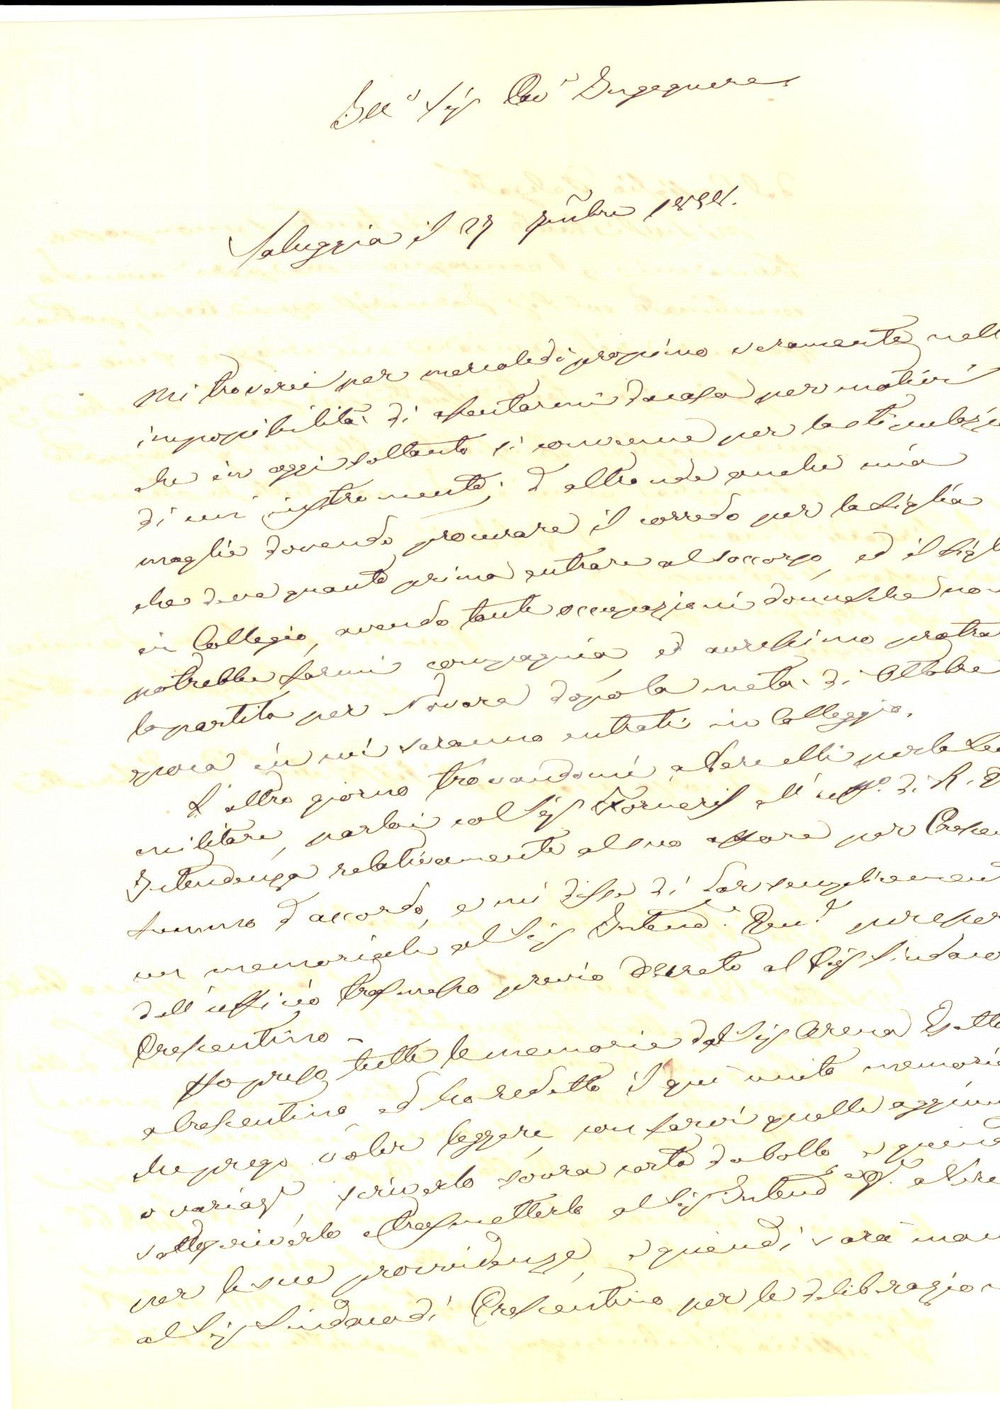 Ill.o Sig Cav.e Ingegnere
Saluggia il 27 7mbre
Mi troverei per mercoledì prossimo veramente nell
impossibilità di assentarmi da casa per motivi
che in oggi soltanto si convenne per la stipulazio
di un instromento; d'altronde anche mia
moglie dovendo procurare il corredo per la figlia
che deve quanto prima entrare al soccorso, ed il figl
in Collegio, avendo tante occupazioni domestiche no
potrebbe farmi compagnia ed avressimo protra
la partita per Novara dopo la metà di Ottobre
epoca in cui saranno entrati in Colleggio.
L'altro giorno trovandomi a Vercelli per la Le
militare, parlai col Sig Forneris all'uff.o di R.
Intendenza relativamente al suo affare per Cresce
fummo d'accordo, e mi disse di far semplicement
un memoriale al Sig Intend.e Gen.e per esser
dall'ufficio trasmesso previo decreto al Sig Sindaco
Crescentino -
Ho preso tutte le memorie dal Sig Arena
a Crescentino ed ho redatto il qui unito memoria
che prego voler leggere, con farvi quelle aggiun
o variaz.i scriverlo sovra carta da bollo e quind
sottoscriverlo e trasmetterlo al Sig Intend.e a Verce
per le sue providenze, e quindi sarà man
al Sig Sindaco di Crescentino per la deliberazio